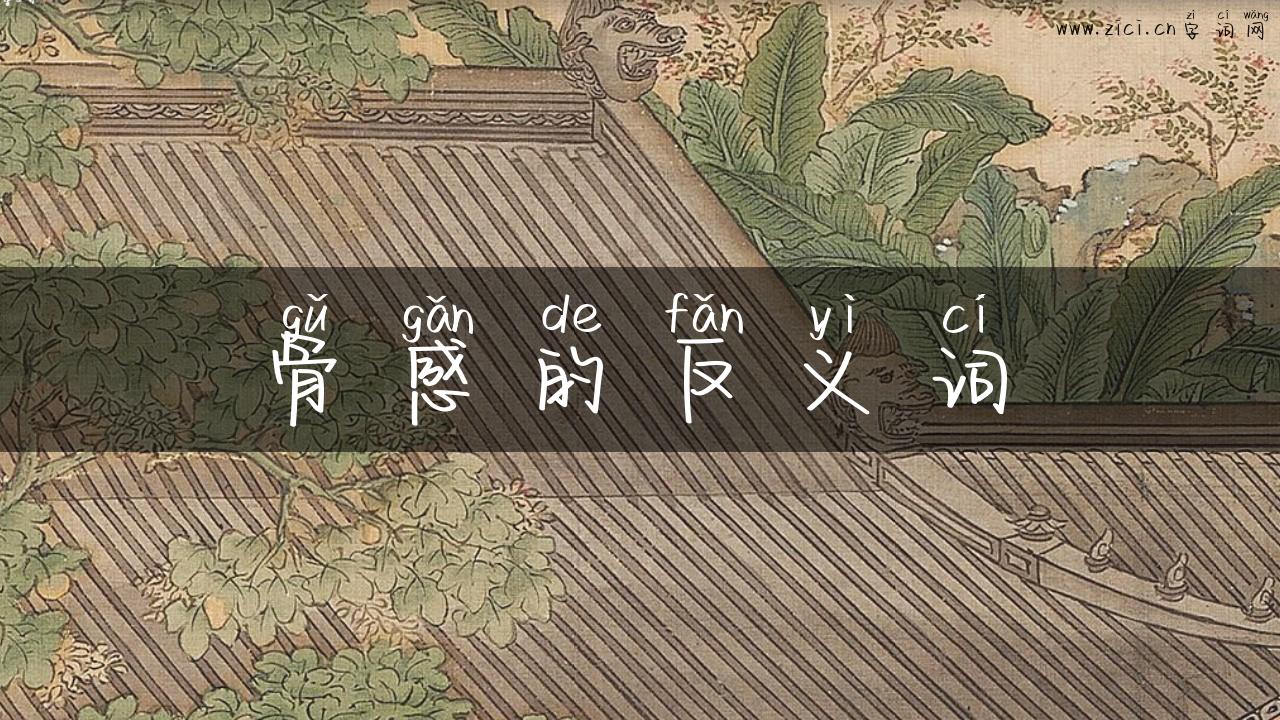 zì cí wǎng
www.zici.cn 字词网
gǔ gǎn de fǎn yì cí
骨感的反义词